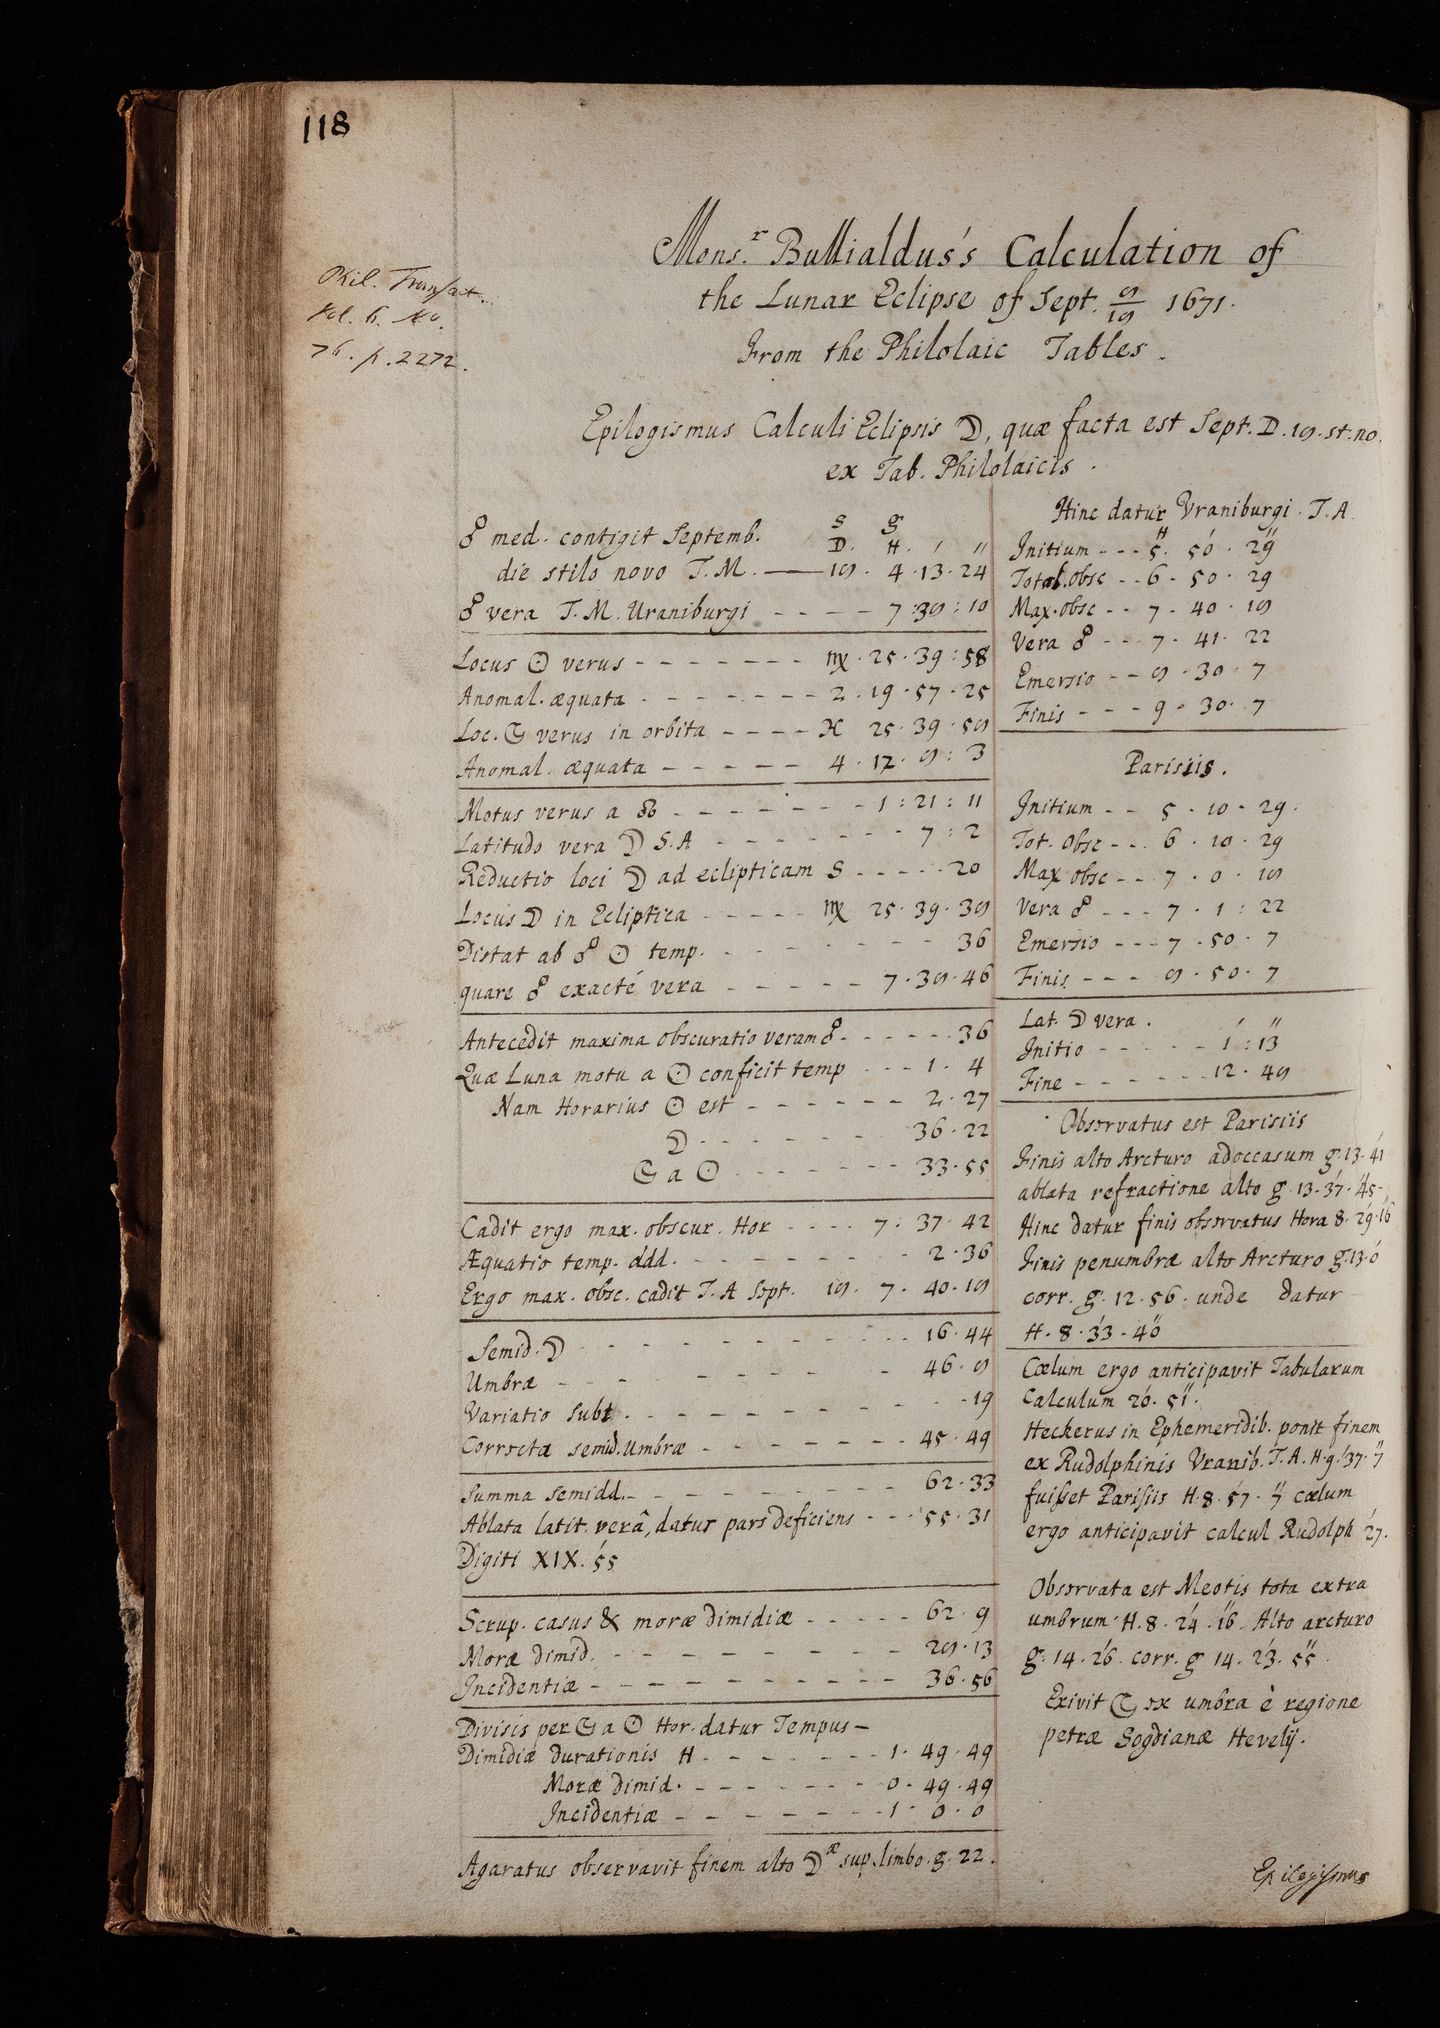 118
Phil. Transact.
Vol. 6. No.
76. p. 2272.
Mons.r Bullialdus's Calculation of
the Lunar Eclipse of Sept. 9/19 1671.
From the Philolaic Tables.
Epilogismus Calculi Eclipsis ☽, quæ facta est Sept. D. 19. st. no.
ex Tab. Philolaicis.
S g
☍ med. contigit Septemb. D. H. ′ ″
die stilo novo T.M. — 19. 4. 13. 24
☍ vera T. M. Uraniburgi - - - - 7 : 39 : 10
Locus ☉ verus - - - - - - - ♍ . 25 . 39 : 58
Anomal. æquata - - - - - - - 2 . 19 . 57 . 25
Loc. ☾ verus in orbita - - - - ♓ 25 . 39 . 59
Anomal. æquata - - - - - 4 . 12 . 9 : 3
Motus verus a ☋ - - - - - - - 1 : 21 : 11
Latitudo vera ☽ S. A - - - - - - - 7 : 2
Reductio loci ☽ ad eclipticam S - - - - - 20
Locus ☽ in Ecliptica - - - - - ♍ 25 . 39 . 39
Distat ab ☍ ☉ temp. - - - - - - - 36
quare ☍ exacté vera - - - - - 7 . 39 . 46
Antecedit maxima obscuratio veram ☍ - - - - - 36
Quæ Luna motu a ☉ conficit temp - - - 1 . 4
Nam Horarius ☉ est - - - - - - 2 . 27
☽ - - - - - - - 36 . 22
☾ a ☉ - - - - - - 33 . 55
Cadit ergo max. obscur. Hor - - - - 7 : 37 . 42
Æquatio temp. add. - - - - - - - 2 . 36
Ergo max. obsc. cadit T. A Sept. 19 . 7 . 40 . 19
Semid. ☽ - - - - - - - - - - 16 . 44
Umbræ - - - - - - - 46 . 9
Variatio subt. - - - - - - - - - - 19
Correcta semid. Umbræ - - - - - - - 45 . 49
Summa semidd. - - - - - - - - 62 . 33
Ablata latit. verâ, datur pars deficiens - - - 55 . 31
Digiti XIX. 55′
Scrup. casus & moræ dimidiæ - - - - - 62 . 9
Moræ dimid. - - - - - - - - 29 . 13
Incidentiæ - - - - - - - - - 36 . 56
Divisis per ☾ a ☉ Hor. datur Tempus —
Dimidiæ durationis H - - - - - - - 1 . 49 . 49
Moræ dimid. - - - - - - - 0 . 49 . 49
Incidentiæ - - - - - - - - 1 . 0 . 0
Agaratus observavit finem alto ☽æ sup. limbo. g. 22.
Hinc datur Vraniburgi . T. A
Initium - - - 5. 50′ . 29″
Total. obsc - - 6 . 50 . 29
Max. obsc - - 7 . 40 . 19
Vera ☍ - - - 7 . 41 . 22
Emersio - - 9 . 30 . 7
Finis - - - 9 . 30 . 7
Parisiis.
Initium - - 5 . 10 . 29.
Tot. Obsc - - . 6 . 10 . 29
Max obsc - - 7 . 0 . 19
Vera ☍ - - - 7 . 1 : 22
Emersio - - - 7 . 50 . 7
Finis - - - 9 . 50 . 7
Lat. ☽ vera. ′ ″
Initio - - - - - 1 : 13
Fine - - - - - - 12 . 49
Observatus est Parisiis
Finis alto Arcturo adoccasum g. 13. 41′
ablata refractione alto g. 13. 37′. 45″.
Hinc datur finis observatus Hora 8. 29′. 16″
Finis penumbræ alto Arcturo g. 13. 0′
corr. g. 12. 56. unde datur
H. 8. 33′. 40″
Cœlum ergo anticipavit Tabularum
Calculum 20′. 51″.
Heckerus in Ephemeridib. ponit finem
ex Rudolphinis Vranib. T. A. H. 9. 37′. 7″
fuisset Parisiis H. 8. 57′. 7″ cœlum
ergo anticipavit calcul Rudolph 27′.
Observata est Meotis tota extra
umbrum. H. 8. 24′. 16″. Alto arcturo
g. 14. 26′. corr. g 14. 23′. 55″.
Exivit ☾ ex umbra è regione
petræ Sogdianæ Hevelij.
Epilogismus